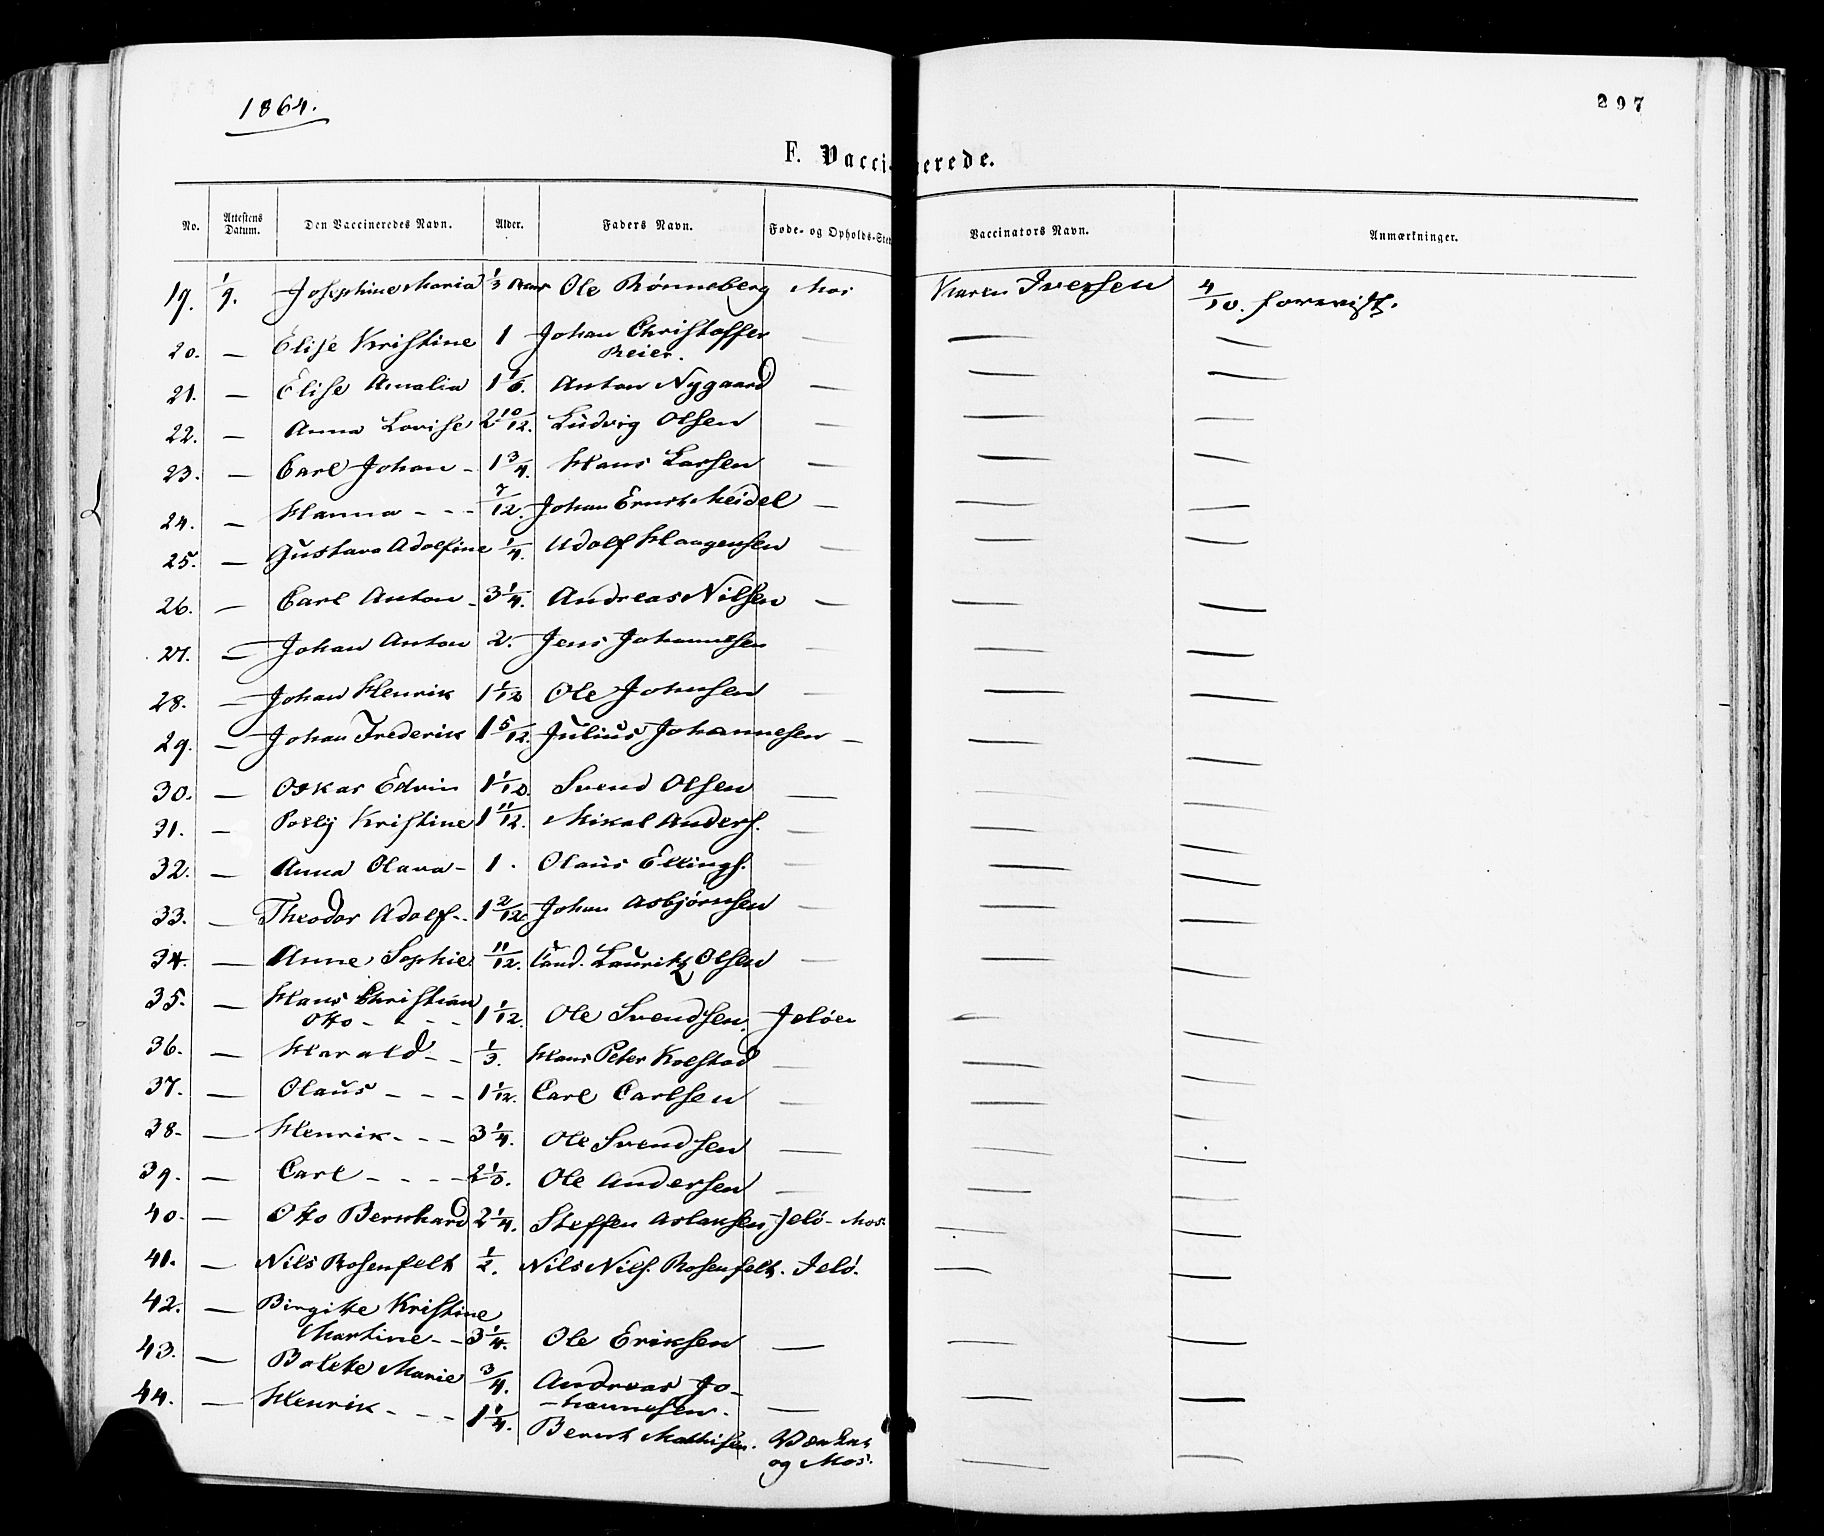 1864.
297
F. Vaccinerede.
No. Attestens Datum. Den Vaccineredes Navn. Alder. Faders Navn. Føde- og Opholds-Sted Vaccinators Navn. Anmærkninger.
19. 1/9. Josephine Maria 1/3 Ole Rønneberg Mos Karen Iversen 4/10. forevist.
20. — Elise Kristine 1 Johan Christoffer — — —
Reier.
21. — Elise Amalia 1 1/6. Anton Nygaard — — —
22. — Anna Lovise 2 10/12. Ludvig Olsen — — —
23. — Carl Johan - 1 3/4. Hans Larsen — — —
24. — Hanna - - - 7/12. Johan Ernst Meidel — — —
25. — Gustava Adolfine 1/4. Adolf Haagensen — — —
26. — Carl Anton - 3 1/4. Andreas Nilsen — — —
27. — Johan Anton 2. Jens Johannesen — — —
28. — Johan Henrik 1 1/12 Ole Johnsen — — —
29. — Johan Frederik 1 5/12. Julius Johannesen — — —
30. — Oskar Edvin 1 1/12. Svend Olsen — — —
31. — Polly Kristine 1 11/12. Mikal Anders. — — —
32. — Anna Olava - 1. Olaus Ellings. — — —
33. — Theodor Adolf - 1 2/12. Johan Asbjørnsen — — —
34. — Anne Sophie 11/12. Lauritz Olsen — — —
35. — Hans Christian
Otto - - - 1 1/12. Ole Svendsen. Jeløen — —
36. — Harald - - 1/3. Hans Peter Kolstad — — —
37. — Olaus - - - 1 1/12. Carl Carlsen — — —
38. — Henrik - - - 3 1/4. Ole Svendsen — — —
39. — Carl - - - - 2 1/3. Ole Andersen — — —
40. — Otto Bernhard 2 1/4. Steffen Aslaksen Jelø - Mos. — —
41. — Nils Rosenfelt 1/2. Nils Nils. Rosenfelt. Jelø. — —
42. — Birgitte Kristine
Martine - - 3 1/4. Ole Eriksen — — —
43. — Bolette Marie 3/4. Andreas Jo-
-hannesen. — — —
44. — Henrik - - - 1 1/4. Bernt Mathisen.
og Mos. — —